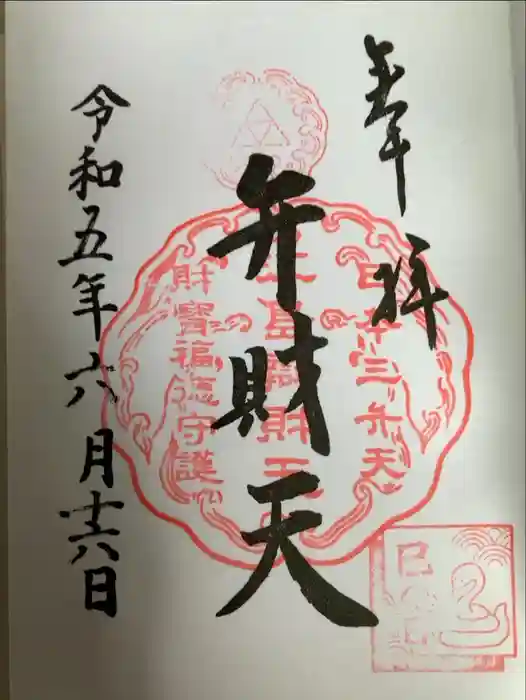 奉拝
日本三弁天
弁財天
財寶福徳守護
令和五年六月
日
巳